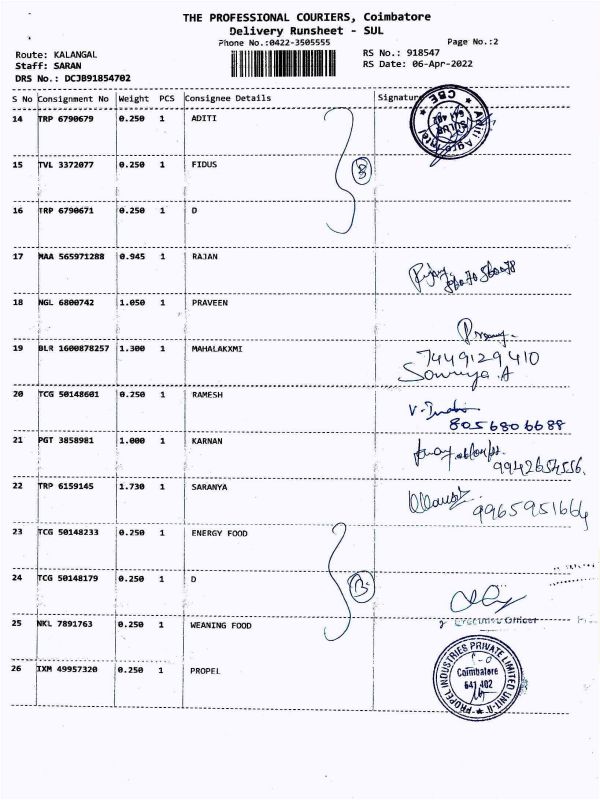 THE PROFESSIONAL COURIERS, Coimbatore
Delivery Runsheet - SUL
Phone No.:0422-3505555
Page No.:2
Route: KALANGAL
Staff: SARAN
DRS No.: DCJB91854702
RS No.: 918547
RS Date: 06-Apr-2022
S No Consignment No Weight PCS Consignee Details Signature
14 TRP 6790679 0.250 1 ADITI
Aditi Agro Intel
SULUR
641 402
CBE
15 TVL 3372077 0.250 1 FIDUS
B
16 TRP 6790671 0.250 1 D
17 MAA 565971288 0.945 1 RAJAN
18 NGL 6800742 1.050 1 PRAVEEN
19 BLR 1600878257 1.300 1 MAHALAKXMI
7449129410
Sowmya.A
20 TCG 50148601 0.250 1 RAMESH
8056806688
21 PGT 3858981 1.000 1 KARNAN
9942654556.
22 TRP 6159145 1.730 1 SARANYA
9965951664
23 TCG 50148233 0.250 1 ENERGY FOOD
24 TCG 50148179 0.250 1 D
B
25 NKL 7891763 0.250 1 WEANING FOOD
Executive Officer
26 IXM 49957320 0.250 1 PROPEL
PROPEL INDUSTRIES PRIVATE LIMITED UNIT-II
Coimbatore
641 402